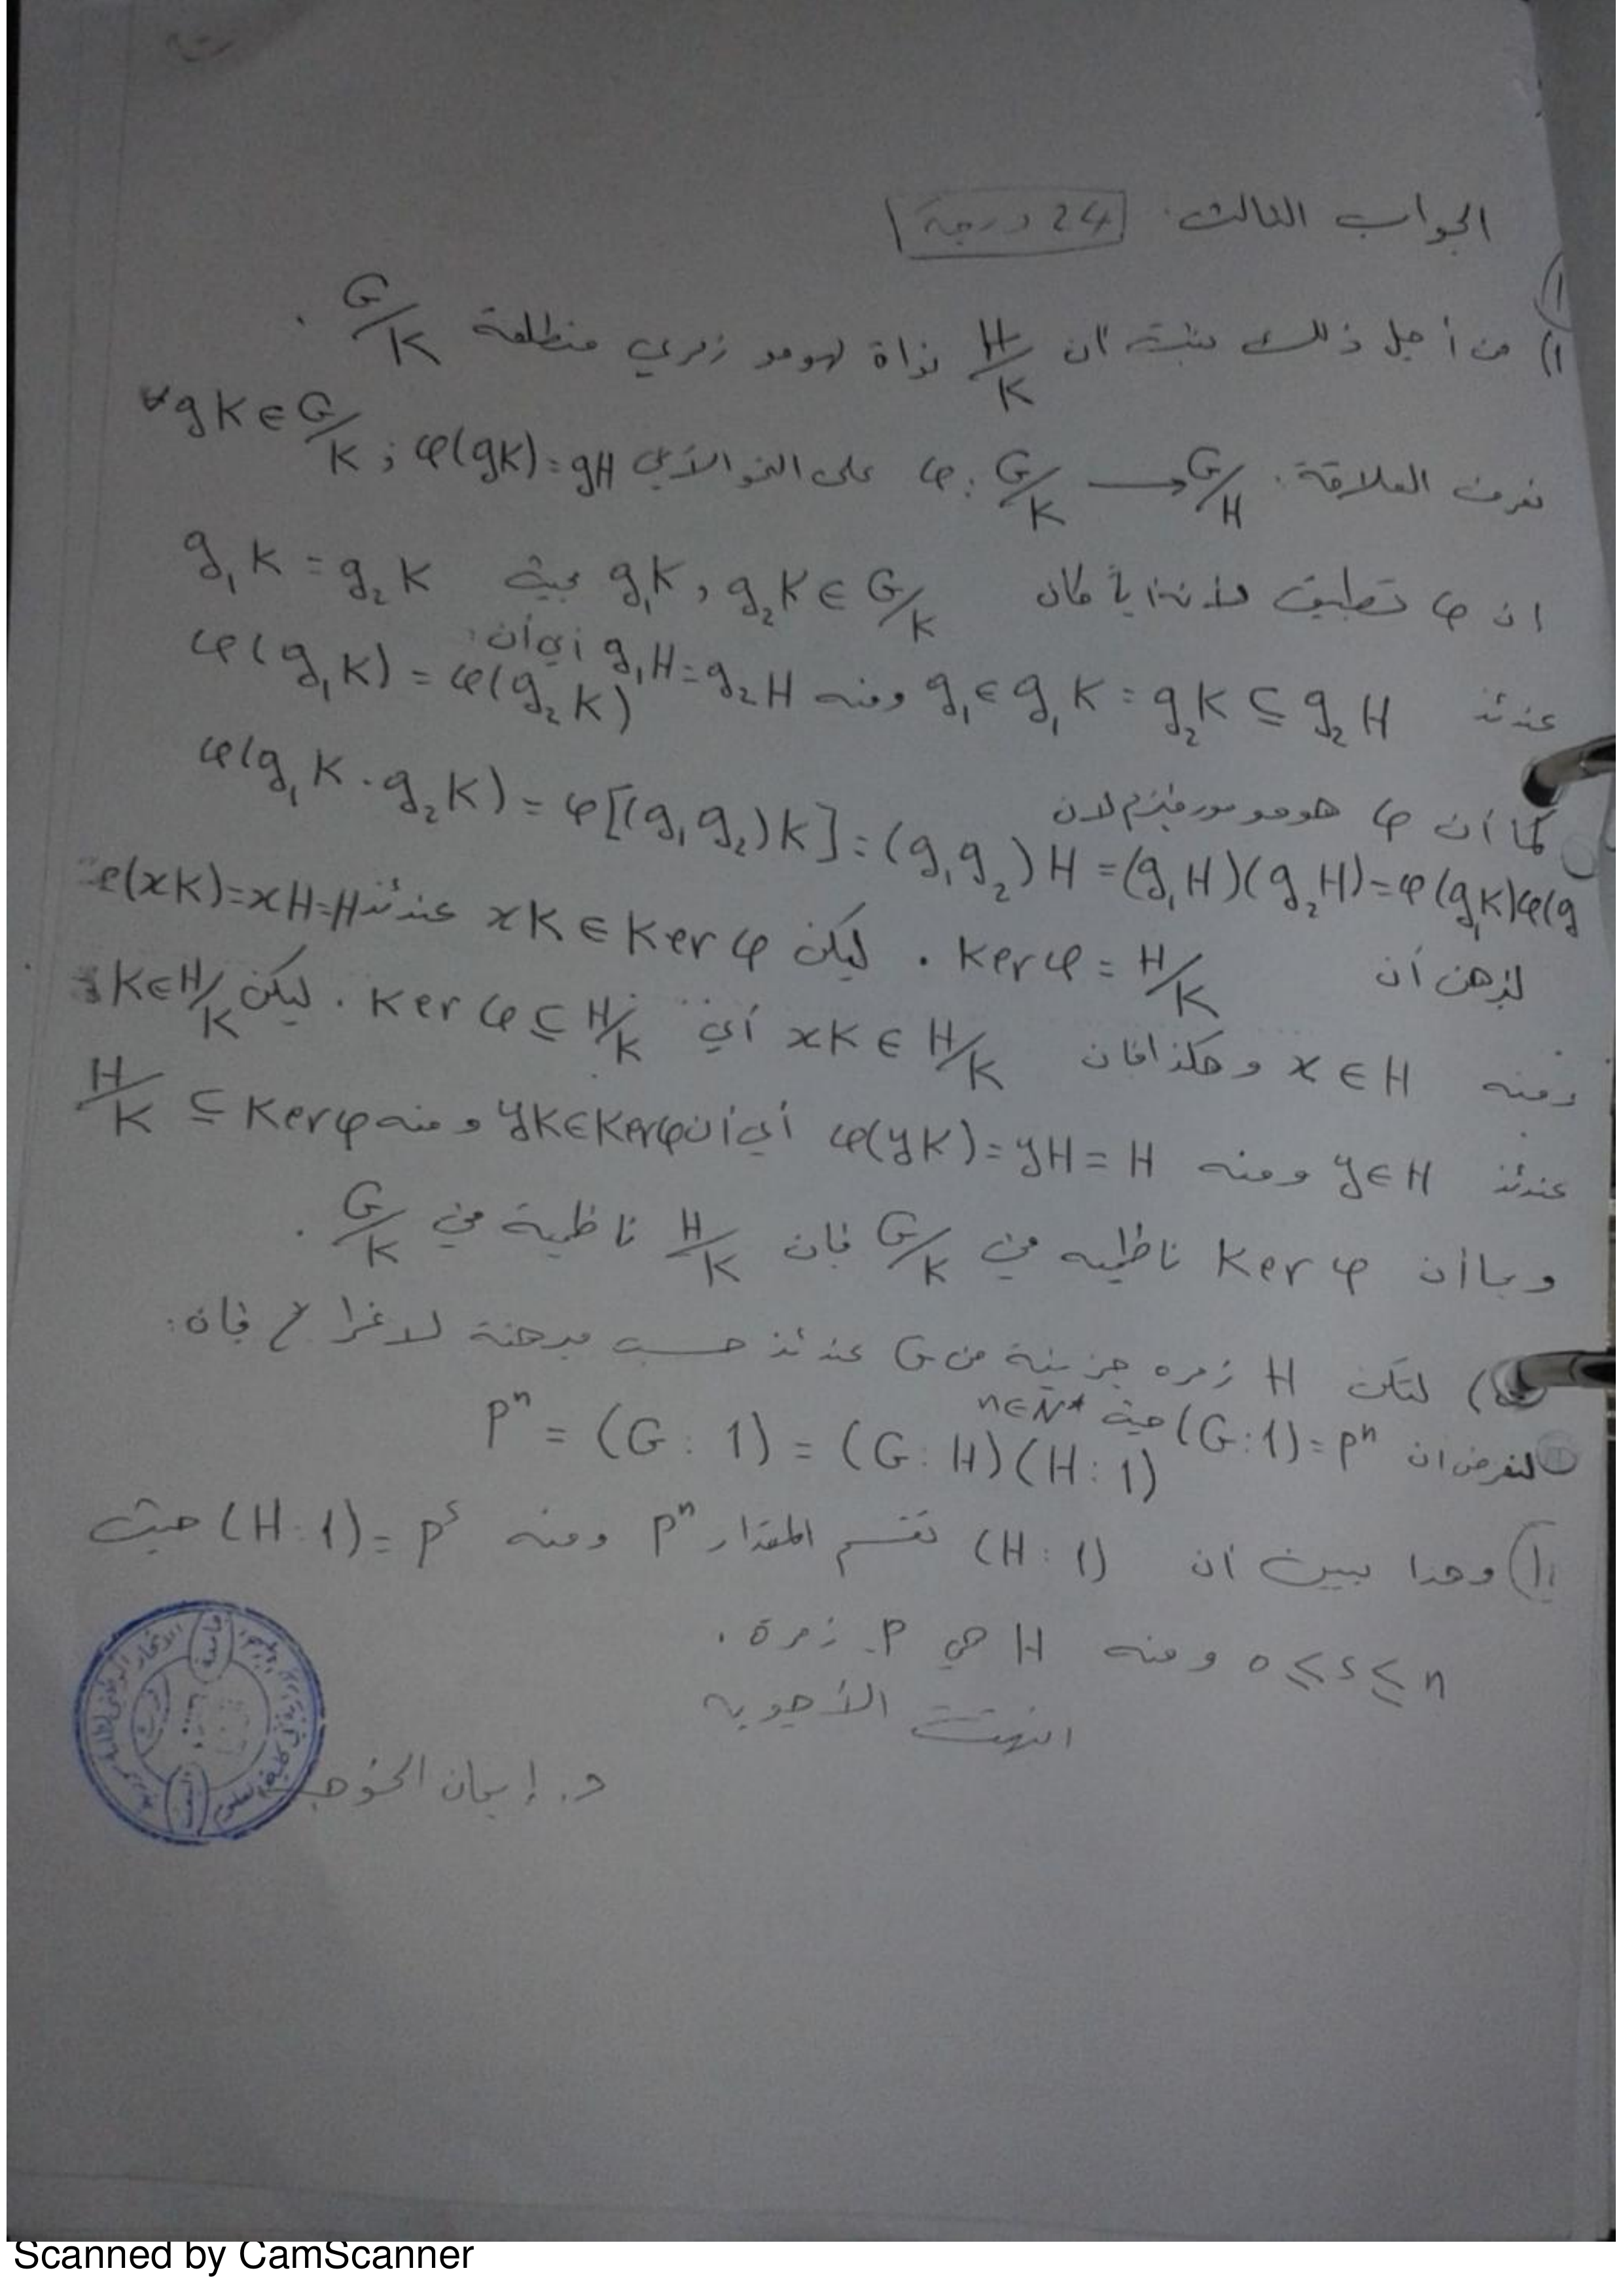 الجواب الثالث. 24 درجة
1) من أجل ذلك نثبت ان H/K نواة لهومو زمري منطلقة G/K .
نعرف العلاقة: φ: G/K → G/H على النحو الآتي φ(gK)=gH ; ∀gK∈G/K
ان φ تطبيق لأنه أياً كان g₁K, g₂K ∈ G/K بحيث g₁K = g₂K
عندئذ g₁∈g₁K = g₂K ⊆ g₂H ومنه g₁H=g₂H أي أن: φ(g₁K) = φ(g₂K)
كما أن φ هومومورفيزم لان φ(g₁K.g₂K) = φ[(g₁g₂)K] = (g₁g₂)H = (g₁H)(g₂H)=φ(g₁K)φ(g
لنبرهن أن Kerφ = H/K . ليكن xK ∈ Kerφ عندئذ φ(xK)=xH=H
ومنه x∈H وهكذا فان xK ∈ H/K أي Ker φ ⊆ H/K . ليكن yK∈H/K
عندئذ y∈H ومنه φ(yK)=yH=H أي أن yK∈Kerφ ومنه H/K ⊆ Kerφ
وبما أن Ker φ ناظمية في G/K فان H/K ناظمية في G/K .
) لتكن H زمره جزئية من G عندئذ حسب مبرهنة لاغرانج فان:
لنفرض ان (G:1)=pⁿ حيث n∈N* pⁿ = (G : 1) = (G : H)(H : 1)
وهذا يبين ان (H : 1) تقسم المقدار pⁿ ومنه (H:1)=pˢ حيث
0 ≤ s ≤ n ومنه H هي P- زمرة .
انتهت الأجوبه
د. إيمان الخوجة
Scanned by CamScanner